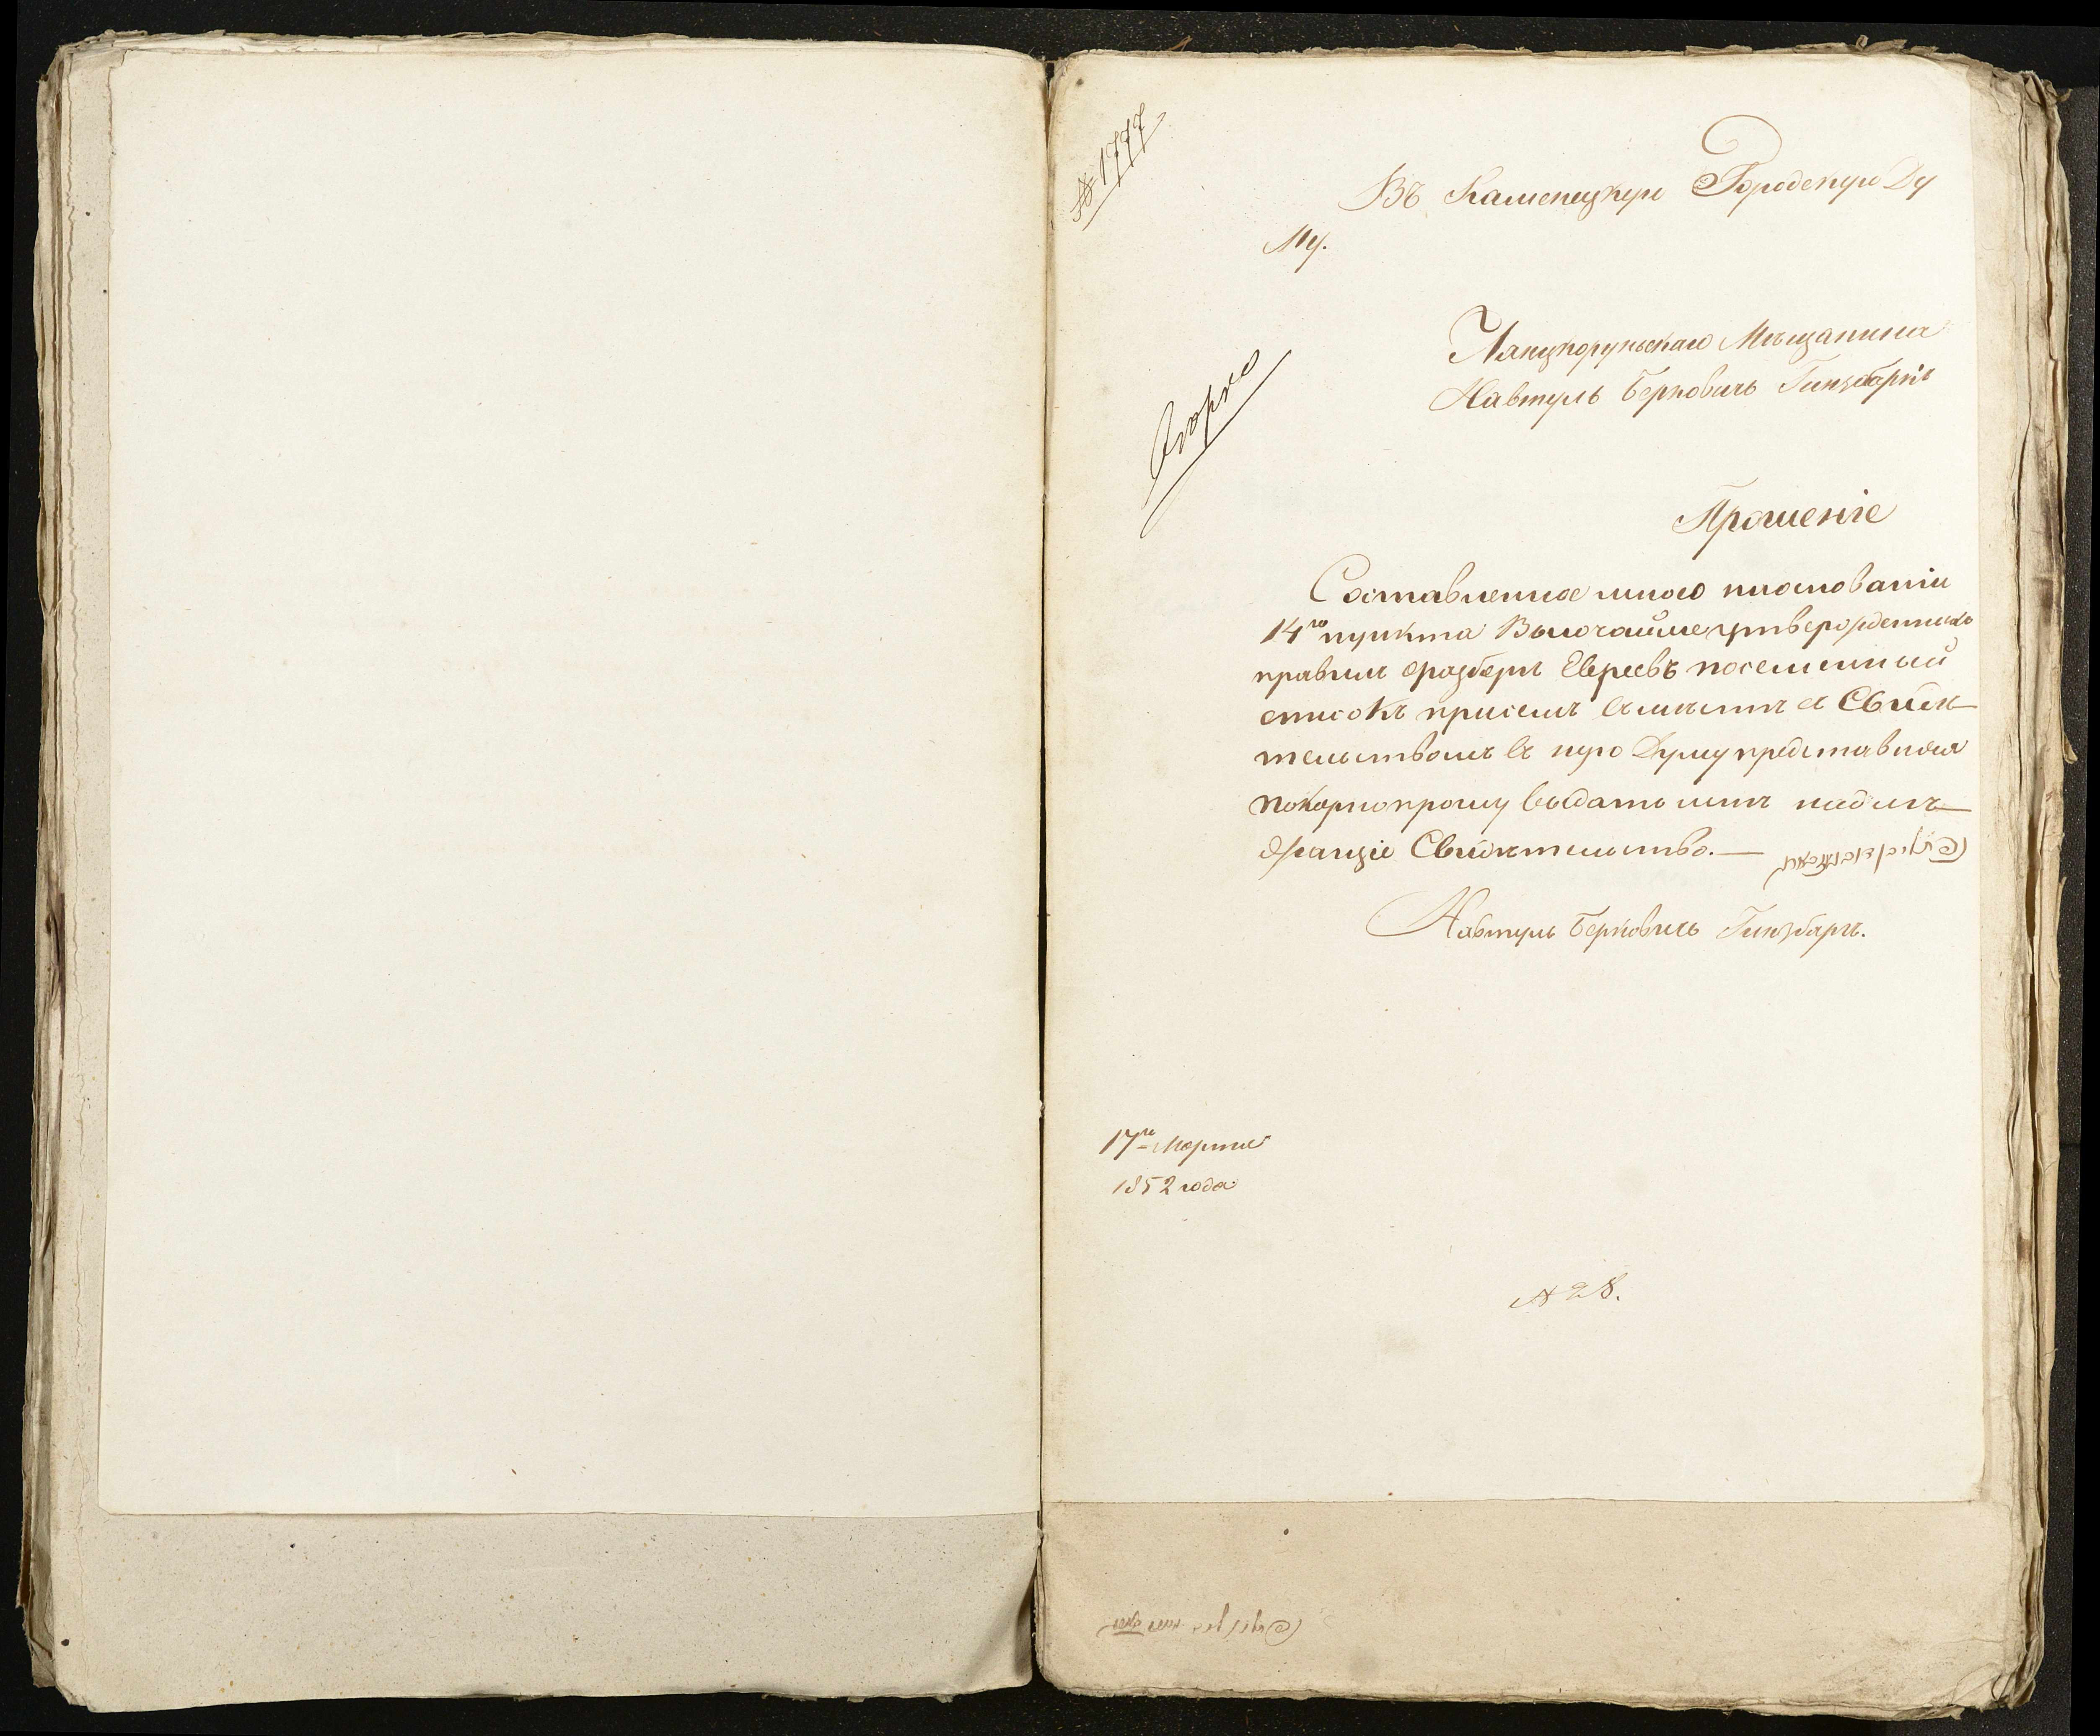 № 1777
Въ Каменецкую Городскую Ду
му.
Лянцкорунскаго Мѣщанина
Навтуль Берковичъ Гинзбаргъ
Прошеніе
Составленное мною на основаніи
14го пункта Высочайше утвержденныхъ
правилъ о разборѣ Евреевъ посемейный
списокъ при семъ вмѣстѣ съ Свидѣ
тельствомъ въ сую Думу представляя
покорно прошу выдать мнѣ надлѣ
жащіе Свидѣтельство.—
Навтуль Берковичъ Гинзбаргъ.
17го Марта
1852 года
№ 28.